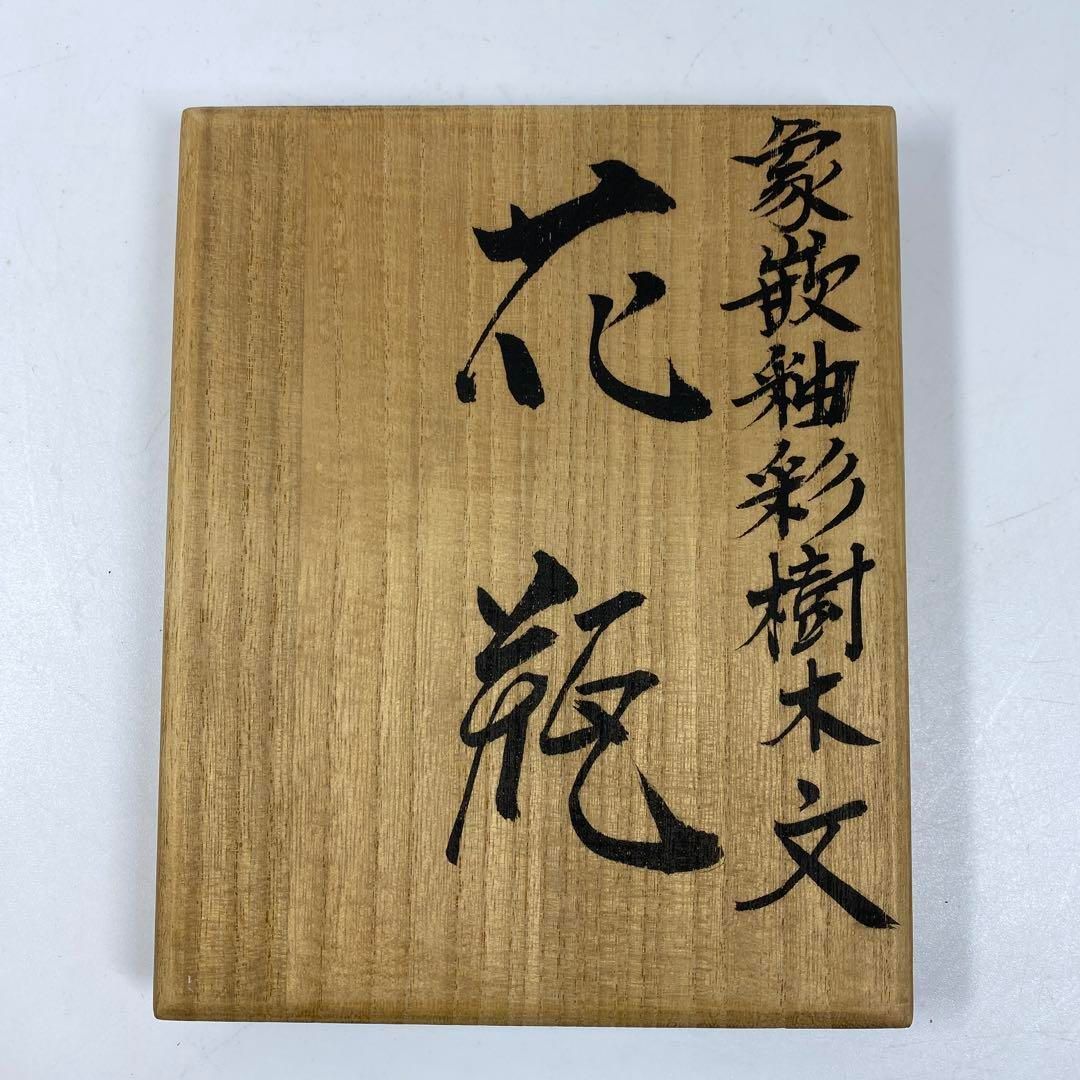 象嵌釉彩樹木文
花瓶